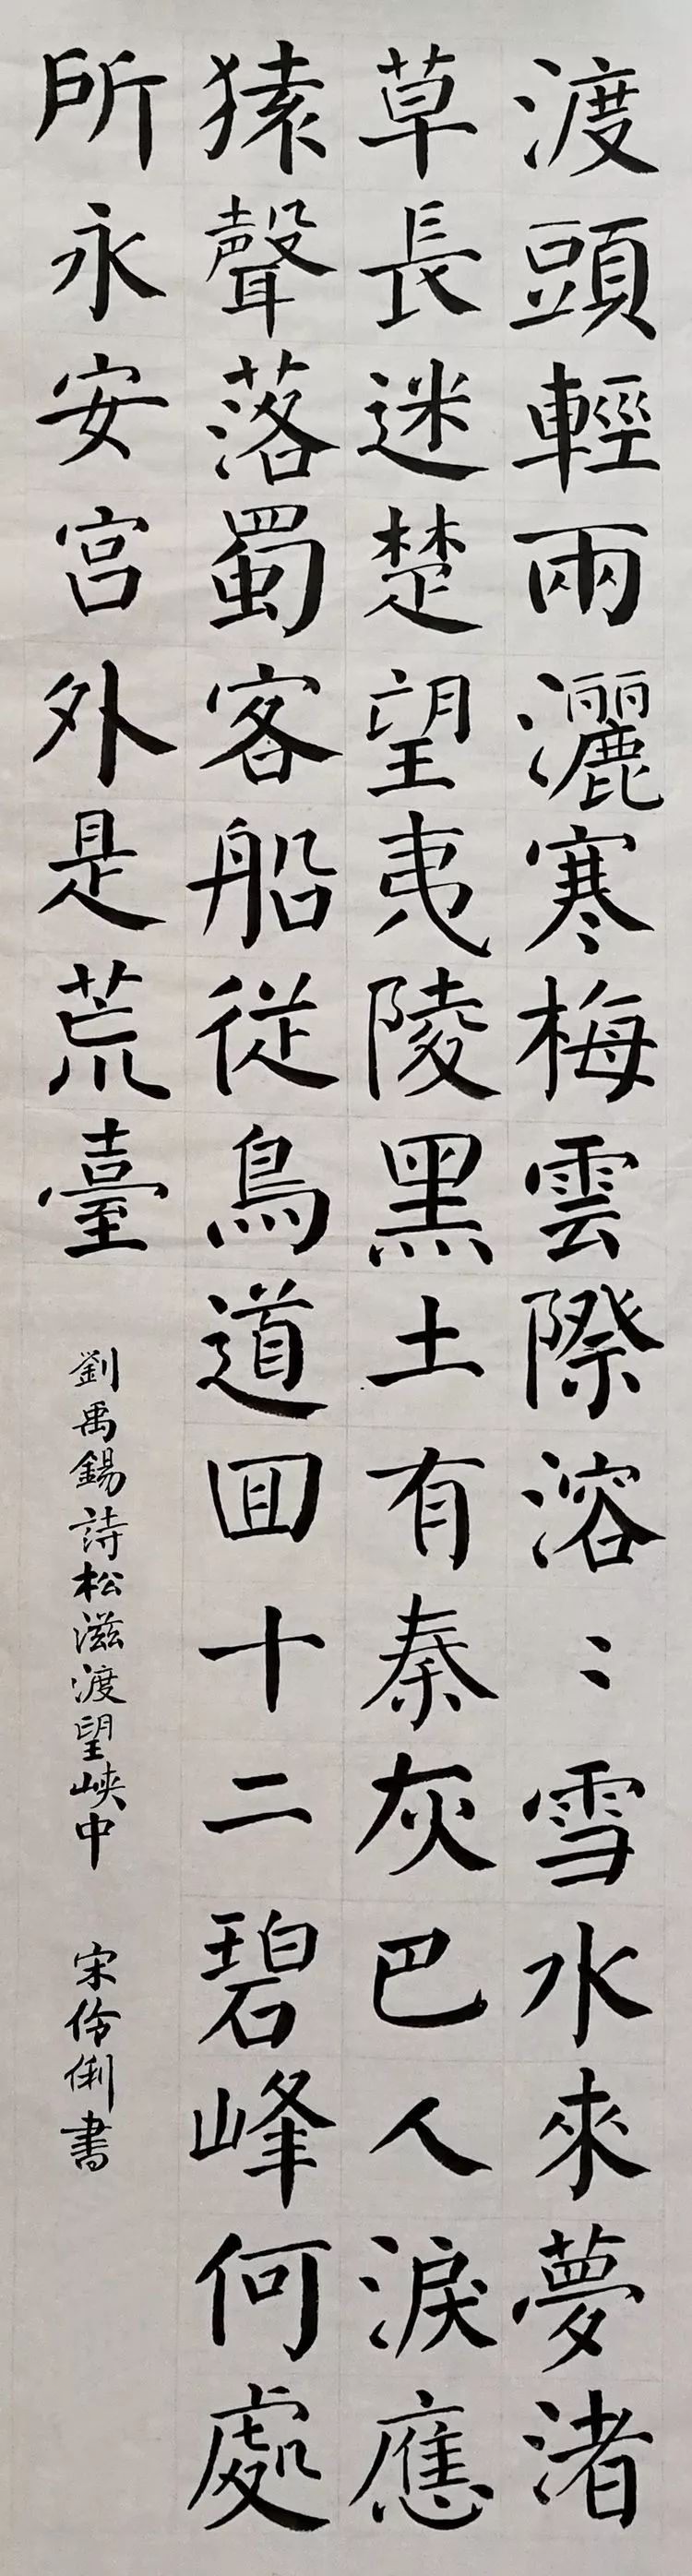 渡頭輕雨灑寒梅雲際溶〻雪水來夢渚
草長迷楚望夷陵黑土有秦灰巴人淚應
猿聲落蜀客船從鳥道回十二碧峰何處
所永安宮外是荒臺
劉禹錫詩松滋渡望峽中 宋伶俐書